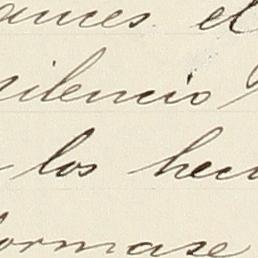 ances el
silencio
los hec
formase